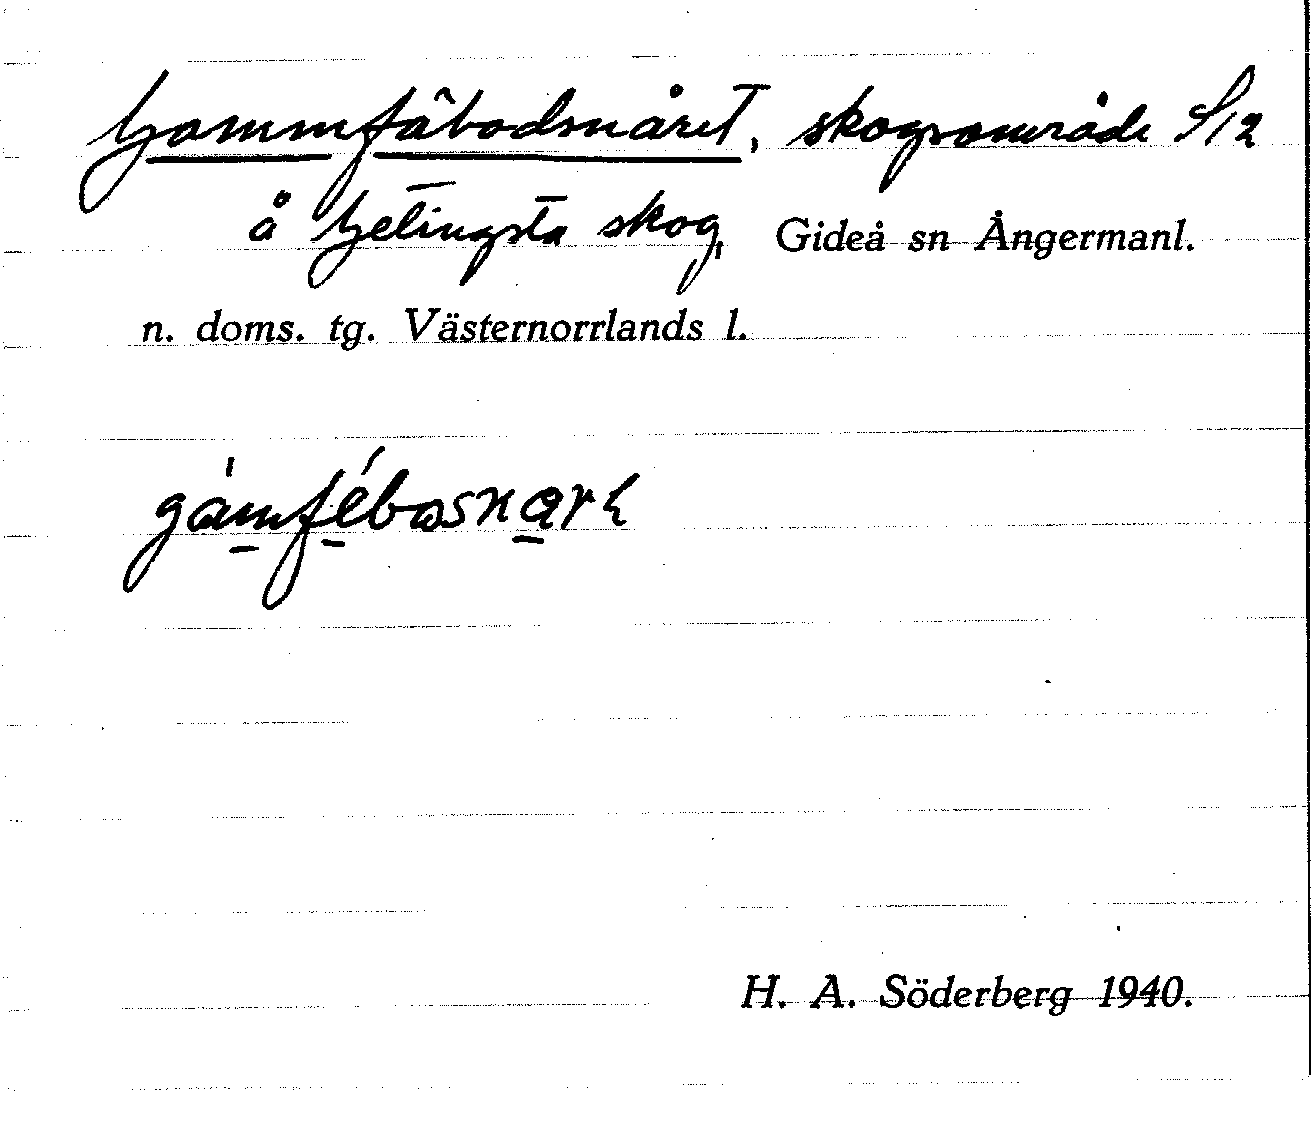 Gammfäbodsnåret, skogsområde S/2
å Getingsta skog, Gideå sn Ångermanl.
n. doms. tg. Västernorrlands l.
H. A. Söderberg 1940.